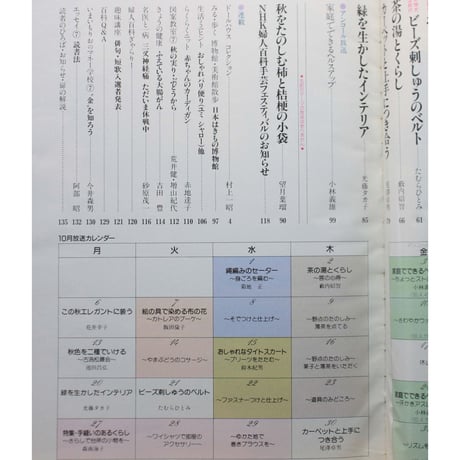 ビーズ刺しゅうのベルト
たむらひとみ
61
茶の湯とくらし
藪内紹智
66
上手につき合う
●アンコール放送
緑を生かしたインテリア
光藤タカ子
85
家庭でできるヘルスアップ
小林義雄
99
秋をたのしむ柿と桔梗の小袋
望月菓瑠
90
NHK婦人百科手芸フェスティバルのお知らせ
118
●連載
ドールハウス コレクション
村上一昭
4
みる・歩く 博物館・美術館散歩 日本はきもの博物館
97
106
赤ちゃんのカーディガン
赤地達子
110
図案教室⑦ 秋の実り・ぶどうから
荒井健・増山紀代
114
きょうの健康 ふえている大腸がん
吉田 豊
116
名医と一病 三叉神経痛 ただいま休戦中
砂原茂一
120
生活パズル・私からひとこと
121
趣味講座 俳句・短歌入選者発表
129
百科Q&A
132
いまいもりおのマネー学校⑦ “金”を知ろう
今井森男
130
エッセイ⑦ 読書法
阿部 昭
132
読者のひろば・お知らせ・扉の解説
135
10月放送カレンダー
月
火
水
木
金
1
縄編みのセーター
～身ごろを編む～
菊池 正
2
茶の湯とくらし
藪内紹智
6
この秋エレガントに装う
花井幸子
7
絵の具で染める布の花
～カトレアのブーケ～
飯田倫子
8
～そでつけと仕上げ～
9
～野点のたのしみ～
薄茶を点てる
13
秋色を二種でいける
～古流松藤会～
池田昌弘
14
～やまぶどうのコサージ～
15
おしゃれなタイトスカート
～プリーツをたたむ～
鈴木紀男
16
～野点のたのしみ～
菓子と薄茶をいただく
20
緑を生かしたインテリア
光藤タカ子
21
ビーズ刺しゅうのベルト
たむらひとみ
22
～ファスナーつけと仕上げ～
23
～道具のみどころ～
27
特集・手縫いのあるくらし
28
～ワイシャツで部屋のアクセサリー～
29
～ゆかた地で巻きブラウスを～
30
カーペットと上手につき合う
尾澤卓男